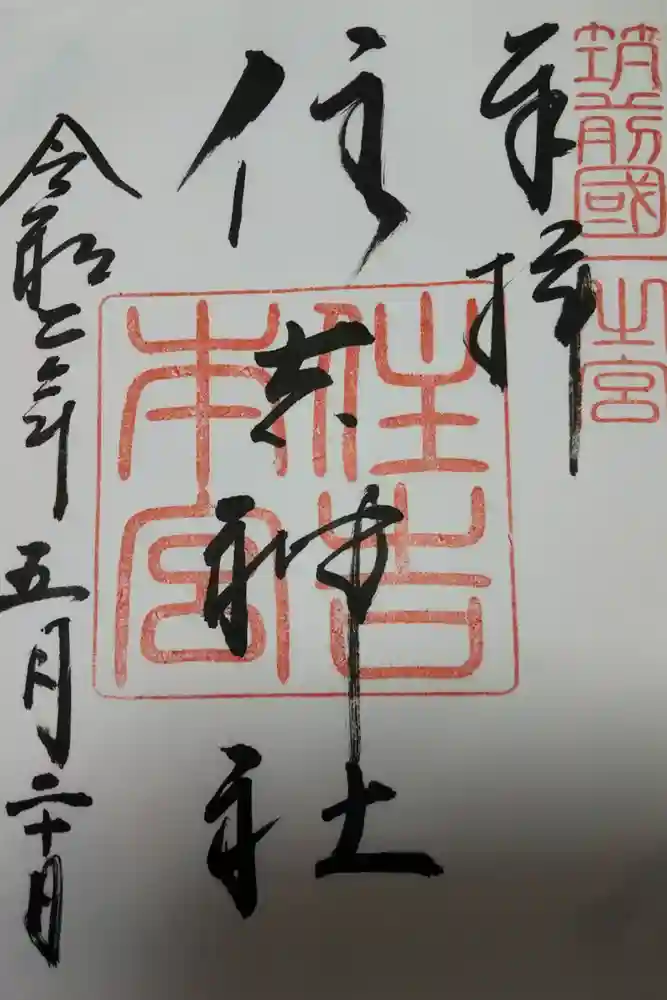 筑前國一之宮
奉拝
住吉神社
住吉本宮
令和二年五月二十日